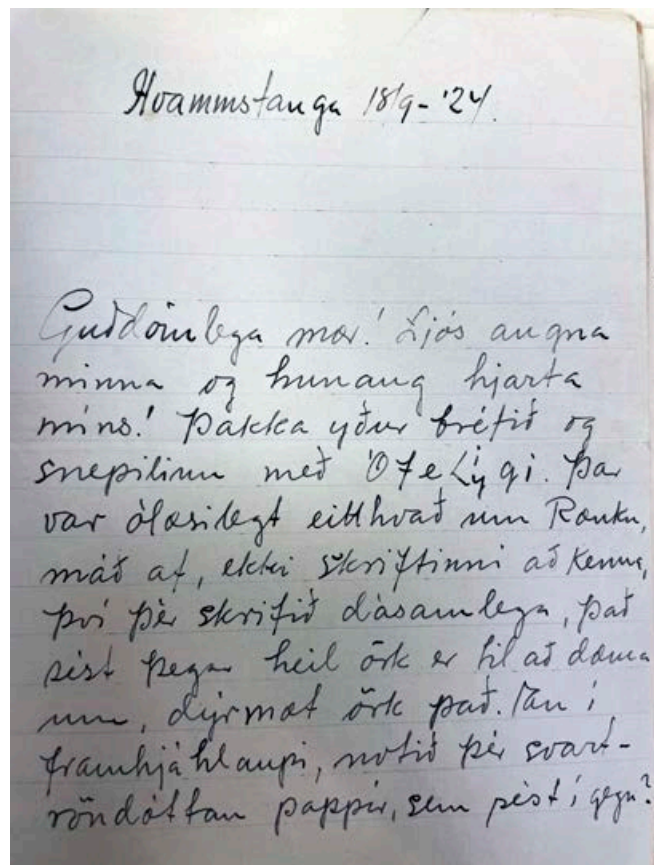 Hvammstanga 18/9-'24.
Guðdómlega mær! Ljós augna
minna og hunang hjarta
míns! Þakka yður bréfið og
snepilinn með
var ólæsilegt eitthvað um Rænku,
máð af, ekki skriftinni að kenna,
því þèr skrifið dásamlega, það
sést þegar heil örk er til að dæma
um, dýrmæt örk það. í
framhjáhlaupi, notið þèr svart-
röndóttan pappír, sem sést í gegn?